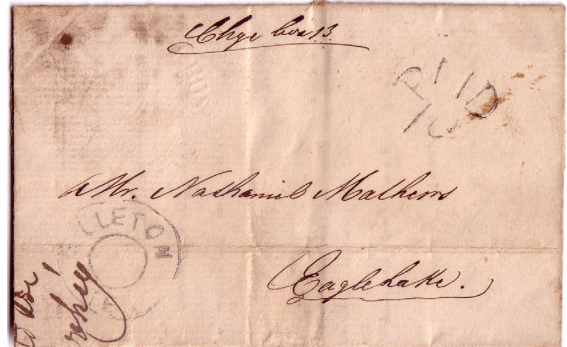 Chge box 13.
PAID
10
Mr. Nathaniel Mathews
LLETON
Eagle Lake.